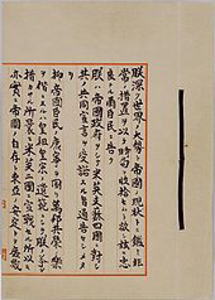 朕深ク世界ノ大勢ト帝國ノ現狀トニ鑑ミ非
常ノ措置ヲ以テ時局ヲ收拾セムト欲シ茲ニ忠
良ナル爾臣民ニ告ク
朕ハ帝國政府ヲシテ米英支蘇四國ニ對シ
其ノ共同宣言ヲ受諾スル旨通告セシメタリ
抑帝國臣民ノ康寧ヲ圖リ萬邦共榮ノ樂
ヲ偕ニスルハ皇祖皇宗ノ遺範ニシテ朕ノ拳々
措カサル所曩ニ米英二國ニ宣戰セル所以モ
亦實ニ帝國ノ自存ト東亞ノ安定トヲ庶幾